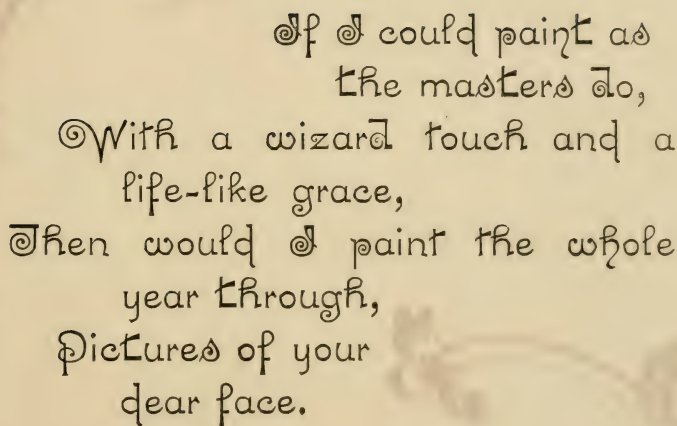 If I could paint as
the masters do,
With a wizard touch and a
life-like grace,
Then would I paint the whole
year through,
Pictures of your
dear face.